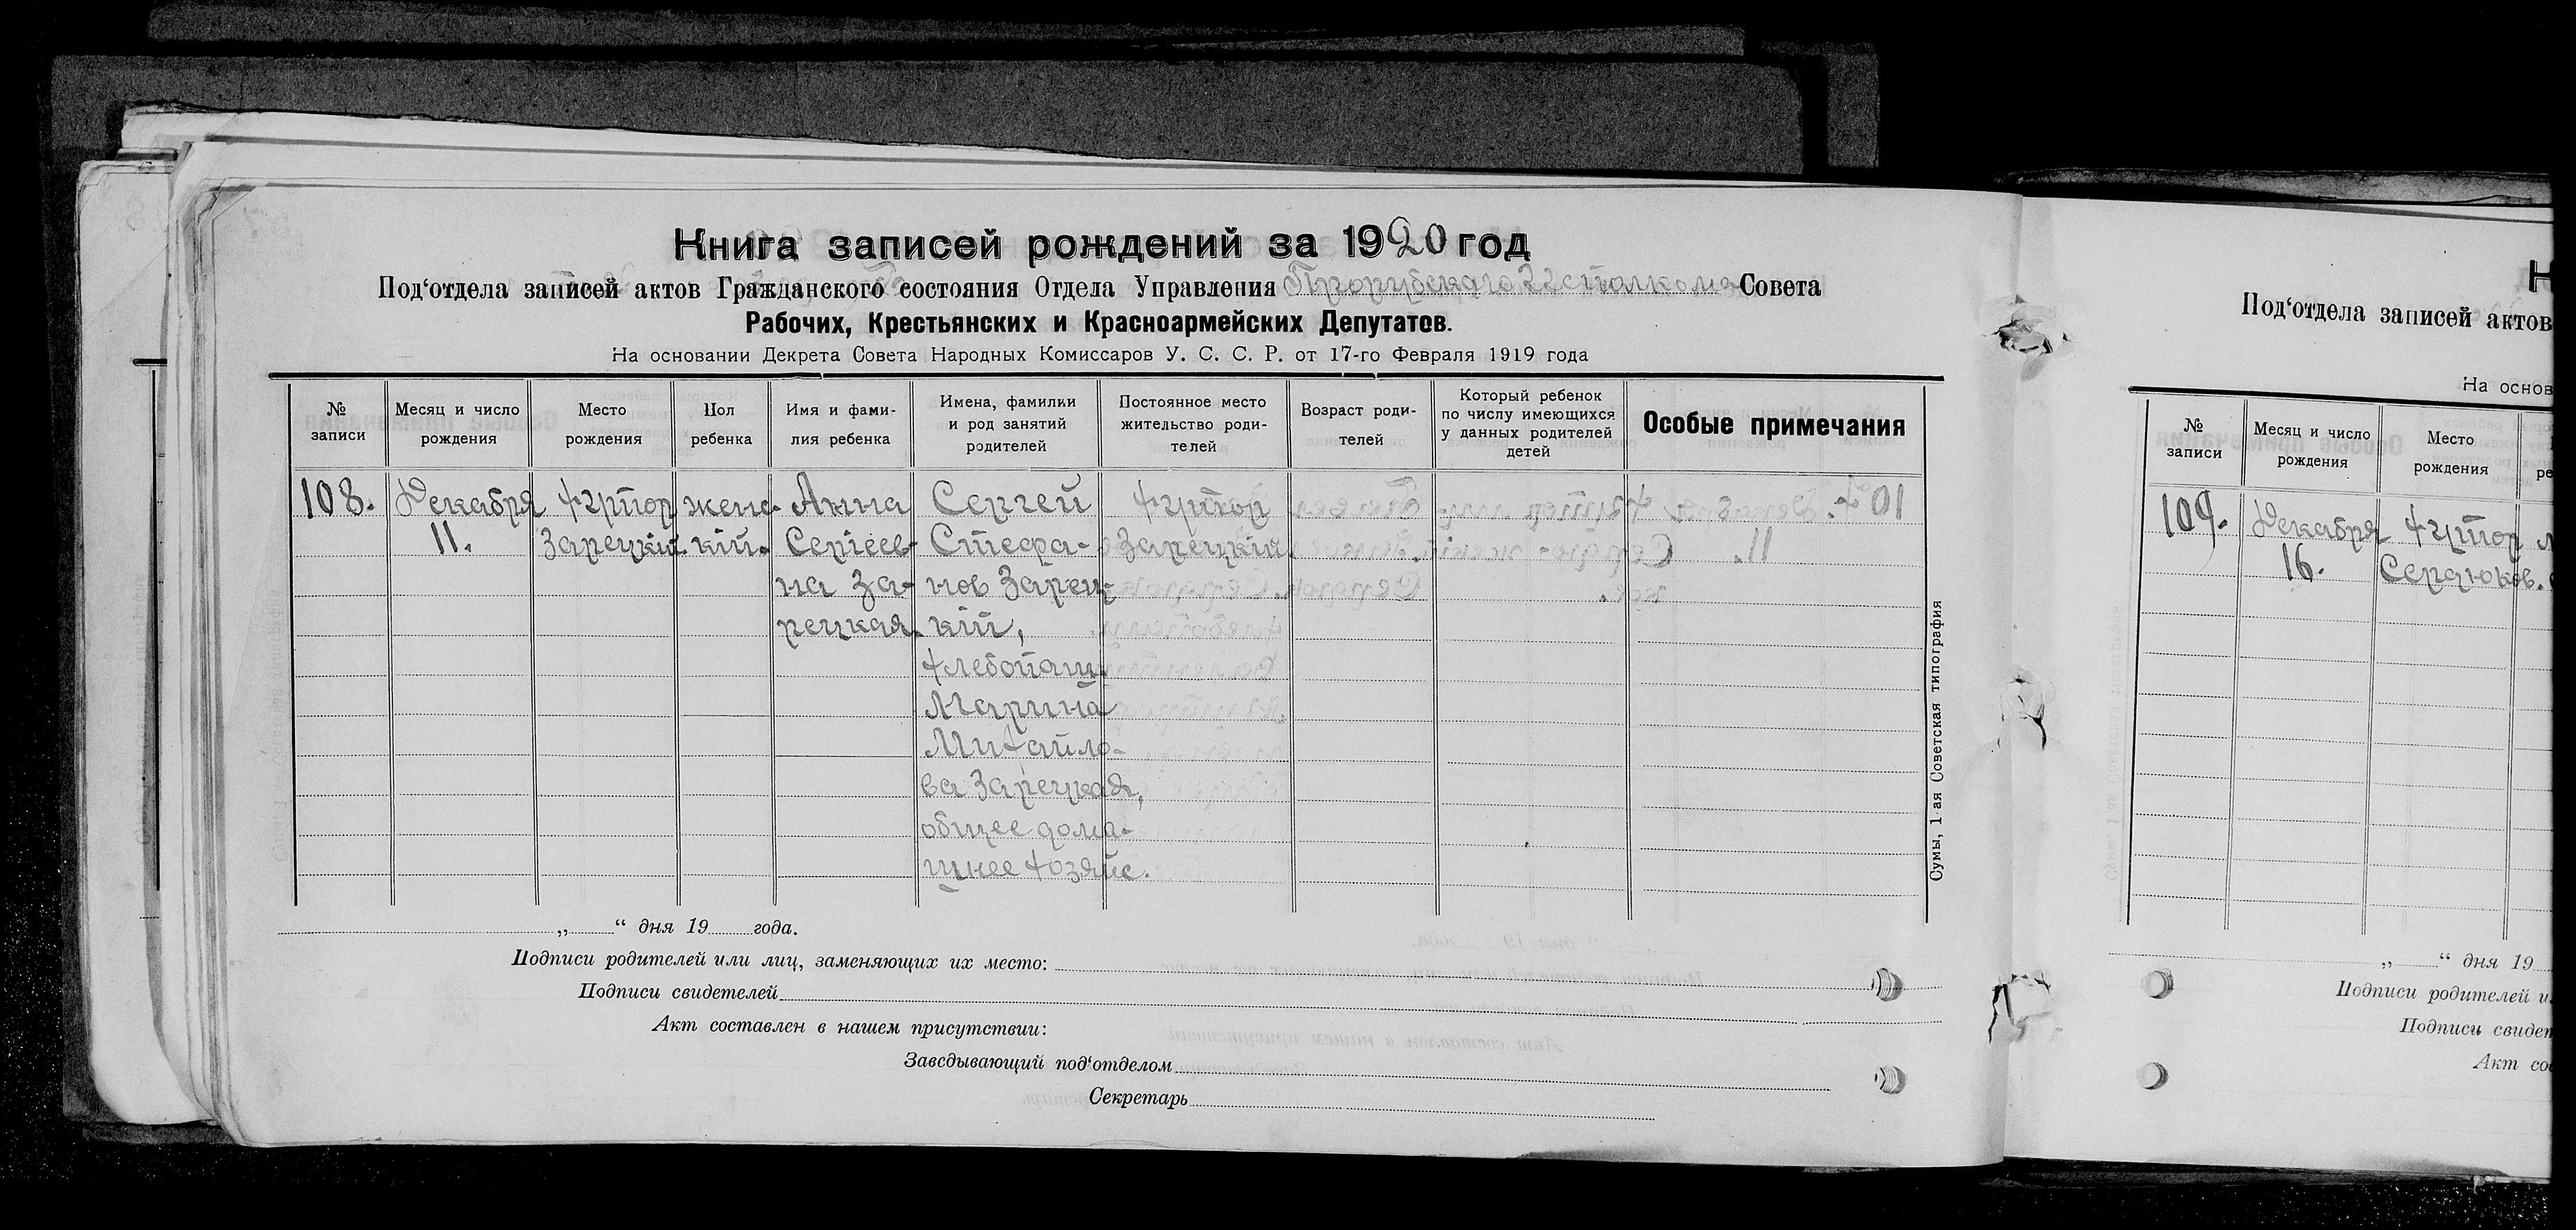 Книга записей рождений за 1920 год
Под'отдела записей актов Гражданского состояния Отдела Управления Прорубскаго Совета
Рабочих, Крестьянских и Красноармейских Депутатов.
На основании Декрета Совета Народных Комиссаров У. С. С. Р. от 17-го Февраля 1919 года
№ записи
Месяц и число рождения
Место рождения
Пол ребенка
Имя и фами-
лия ребенка
Имена, фамилии
и род занятий
родителей
Постоянное место
жительство роди-
телей
Возраст роди-
телей
Который ребенок
по числу имеющихся
у данных родителей
детей
Особые примечания
108.
Декабря
11.
хутор
Зарецкий.
женс-
кій.
Анна
Сергеев-
на За-
рецкая.
Сергей
Стефа-
нов Зарец-
кій,
хлебопаш.
Марина
Михайло-
ва Зарецкая,
общее дома-
шнее хозяйс.
хутор
Зарецкий.
Сумы, 1-ая Советская типография
„ “ дня 19 года.
Подписи родителей или лиц, заменяющих их место:
Подписи свидетелей
Акт составлен в нашем присутствии:
Заведывающий под'отделом
Секретарь
К
Под'отдела записей актов
На основ
№
записи
Месяц и число
рождения
Место
рождения
ре
109.
Декабря
16.
хутор
Сердюков.
„ “ дня 19
Подписи родителей и
Подписи свидет
Акт со